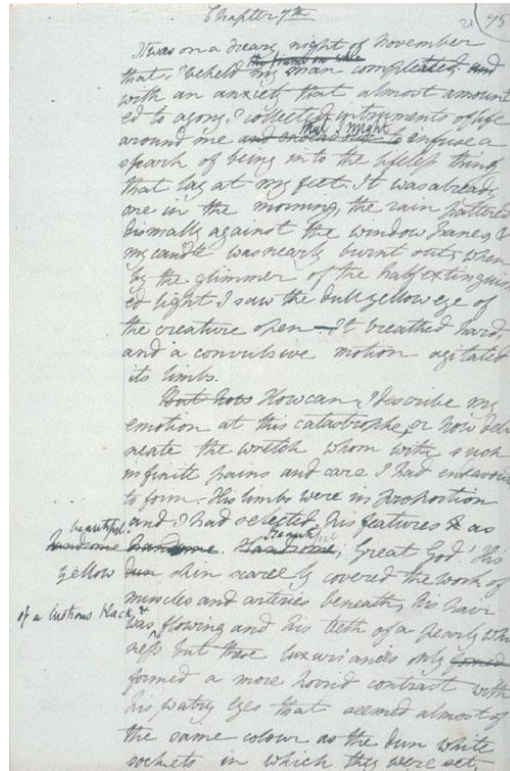 Chapter 7th
75
It was on a dreary night of November
the frame on whic
that I beheld my man compleated and
with an anxiety that almost amount
ed to agony, I collected instruments of life
that I might
around me and endeavour to infuse a
spark of being into the lifeless thing
that lay at my feet. It was already
one in the morning, the rain pattered
dismally against the window panes, &
my candle was nearly burnt out, when
by the glimmer of the half extinguish
ed light I saw the dull yellow eye of
the creature open—It breathed hard,
and a convulsive motion agitated
its limbs.
But how How can I describe my
emotion at this catastrophe, or how deli
neate the wretch whom with such
infinite pains and care I had endeavour
to form. His limbs were in proportion
and I had selected his features as
beautiful. beautiful
handsome handsome. Handsome; Great God! His
yellow dun skin scarcely covered the work of
muscles and arteries beneath; his hair
of a lustrous black, &
was flowing and his teeth of a pearly whi
ness but these luxuriances only formed
formed a more horrid contrast with
his watry eyes that seemed almost of
the same colour as the dun white
sockets in which they were set